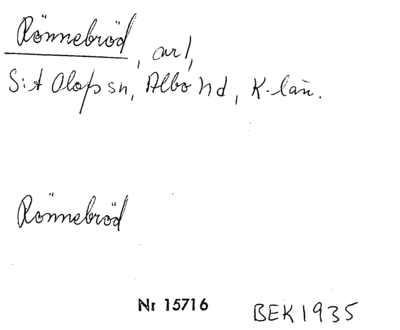 Rönnebröd, arl,
S:t Olofs sn, Albo hd, K-län.
Rönnebröd
Nr 15716 BEK 1935